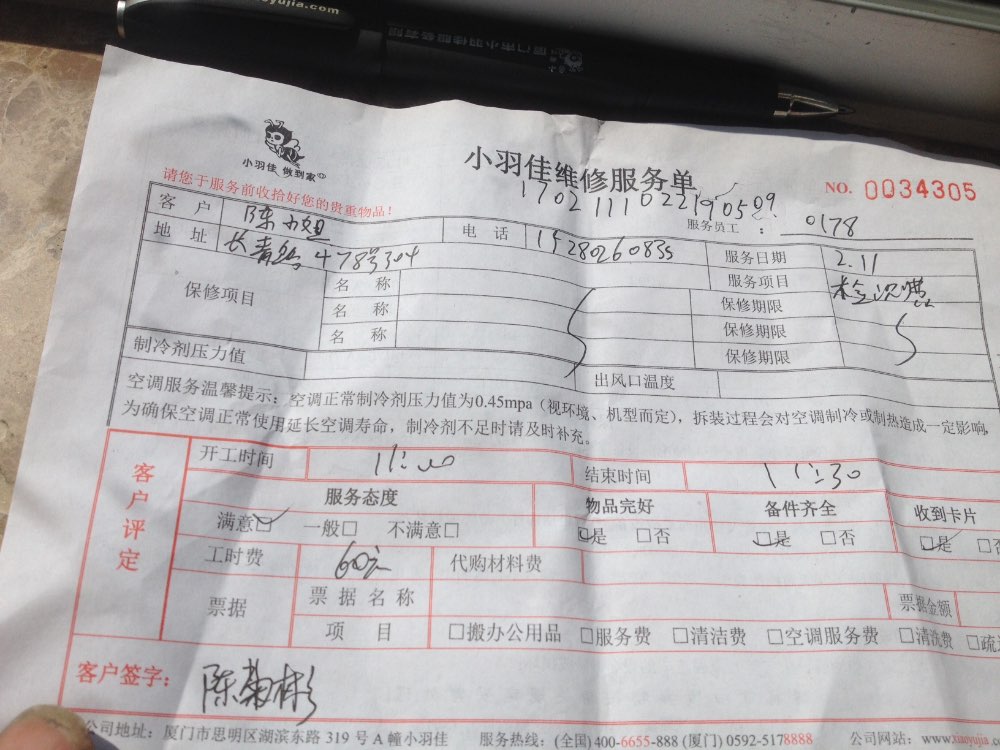 oyujia.com
厦门市小羽佳服务有限
小羽佳 做到家
小羽佳维修服务单
NO. 0034305
请您于服务前收拾好您的贵重物品!
1702111022190509
服务员工 : 0178
客 户 陈小姐 电 话 服务日期 2.11
地 址 长青路478号304 服务项目
保修项目 名 称 保修期限
名 称 保修期限
名 称 保修期限
制冷剂压力值 出风口温度
空调服务温馨提示:空调正常制冷剂压力值为0.45mpa(视环境、机型而定),拆装过程会对空调制冷或制热造成一定影响,
为确保空调正常使用延长空调寿命,制冷剂不足时请及时补充。
客户评定
开工时间 11:00 结束时间 11:30
服务态度 物品完好 备件齐全 收到卡片
满意□ 一般□ 不满意□ □是 □否 □是 □否 □是 □否
工时费 60元 代购材料费
票据 票据名称 票据金额
项 目 □搬办公用品 □服务费 □清洁费 □空调服务费 □清洗费 □疏
客户签字: 陈菊彬
公司地址:厦门市思明区湖滨东路 319 号 A 幢小羽佳 服务热线:(全国) 400-6655-888 (厦门) 0592-5178888 公司网站:www.xiaoyujia.c